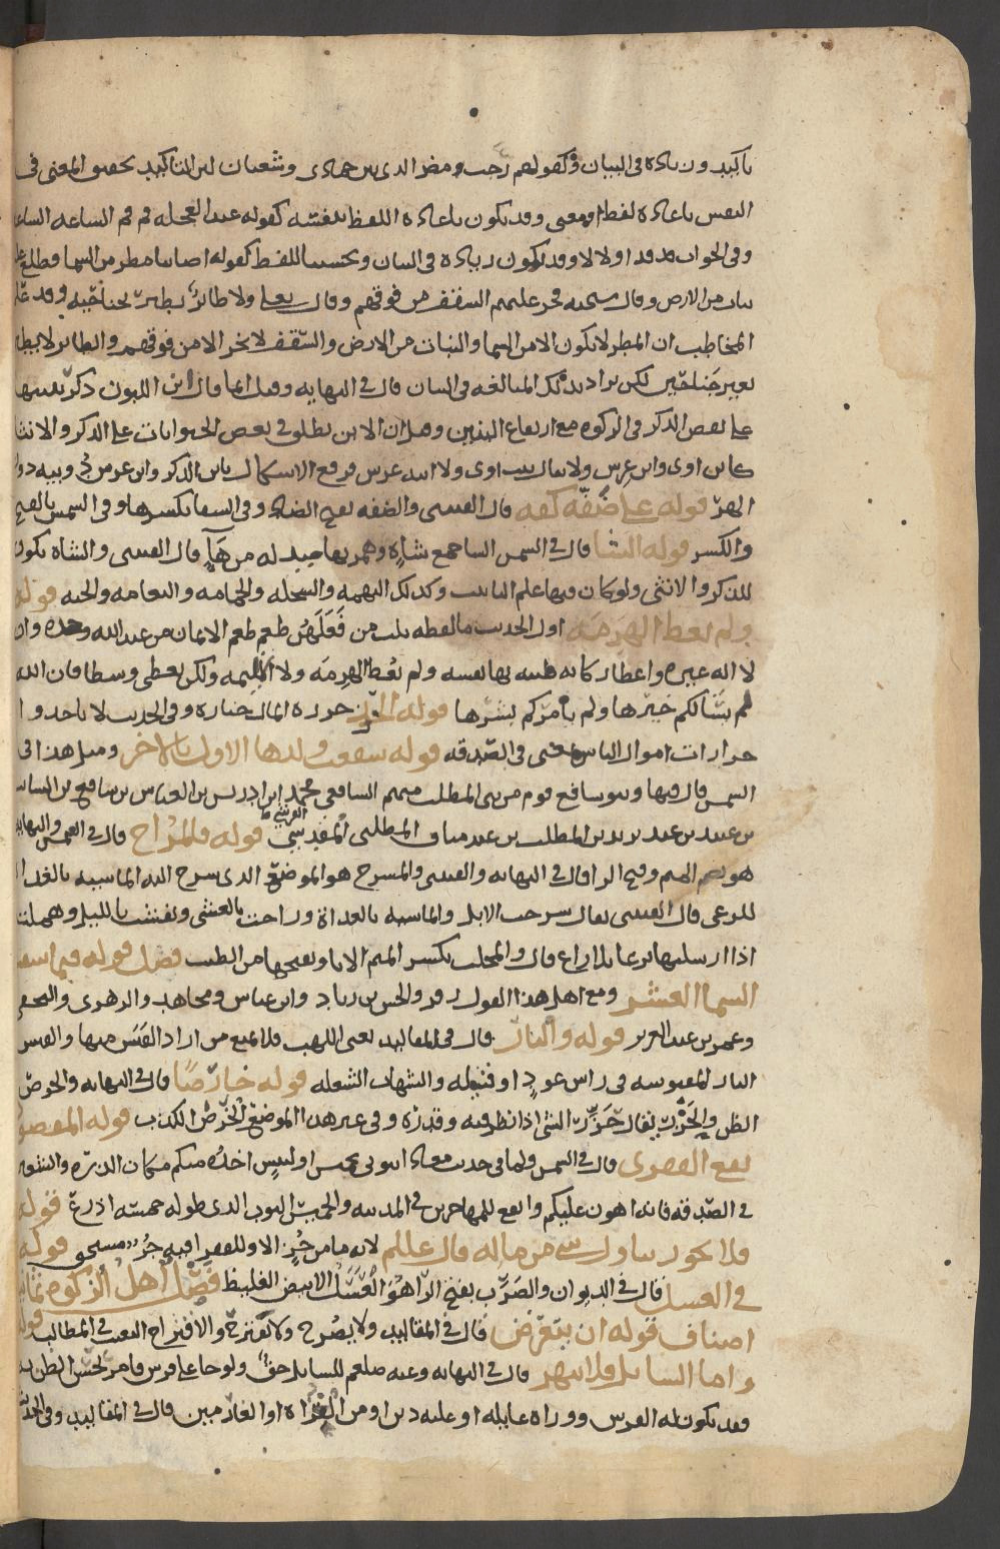 تاكيد وزيادة في البيان وكقولهم رجب ومضر الدي بين جمادى وشعبان لان التاكيد تحقيق المعنى في
النفس باعادة لفظ او معنى وقد تكون باعادة اللفظ بنفسه كقوله عند العجله قم قم الساعه الساعه
وفي الجواب قد قد او لا لا وقد تكون زيادة في البيان وبحسب اللفظ كقوله اصابنا مطر من السما وطلع
نبات من الارض وقال سبحنه فخر عليهم السقف من فوقهم وقال تعلى ولا طائر يطير بجناحيه وقد علم
المخاطب ان المطر لا يكون الا من السما والنبات من الارض والسقف لا يخر الا من فوقهم والطائر لا يطير
بغير جناحين لكن يراد بذلك المبالغه في البيان قال في النهايه وقيل انما قال ابن اللبون ذكر تنبيها
على نقص الذكر في الزكوه مع ارتفاع السنين وقيل ان الابن يطلق في بعض الحيوانات على الذكر والانثى
كابن اوى وابن عرس ولا يقال بنت اوى ولا ابنه عرس فرفع الاشكال
الهر قوله على ضفة كفه قال العنسي والضفه بفتح الضاد وفي الشفا بكسرها وفي الشمس بالفتح
والكسر قوله الشا قال في الشمس الشا جمع شاة وهمزتها مبدله من هاء قال العنسي والشاة تكون
للذكر والانثى ولو كان فيها علم التانيث وكذلك البهمه والسخله والحمامه والنعامه والحيه قوله
ولم يعط الهرمة اول الحديث ما لفظه ثلث من فعلهن طعم طعم الايمان من عبد الله وحده وان
لا اله غيره واعطا زكاته طيبه بها نفسه ولم يعط الهرمه ولا اللئيمه ولكن يعطي وسطا فان الله
لم يسالكم خيرها ولم يامركم بشرها قوله حزره المال خياره وفي الحديث لا ياخذوا
حزرات اموال الناس يعني في الصدقه قوله شفعت ولدها الاول بالاخر ومثل هذا في
الشمس قال فيها وبنو شافع قوم من بني المطلب منهم الشافعي محمد ابن ادريس بن العباس بن شافع بن السائب
بن عبيد بن عبد يزيد بن المطلب بن عبد مناف المطلبي القرشي قوله فالمراح قال في الشمس والنهايه
هو بضم الميم وفتح الرا قال في النهايه والعنسي والمسرح هو الموضع الذي تسرح اليه الماشيه بالغداة
للرعي قال العنسي يقال سرحت الابل والماشيه بالغداة وراحت بالعشي ونفشت بالليل وهملت
اذا ارسلتها ترعا بلا راع قال والمحلب بكسر الميم الانا وبفتحها من الطيب فصل قوله فيما سقت
السما العشر ومع اهل هذا القول زفر والحسن بن زياد وابن عباس ومجاهد والزهري والنخعي
وعمر بن عبد العزيز قوله والنار قال في المقاليد يعنى اللهب فلا يمنع من اراد القبس منها والقبس
النار المقبوسه في راس عود او فتيله والشهاب الشعله قوله خارصا قال في النهايه والخرص
الظن والحزر يقال حزرت الشي اذا نظرته وقدرته وفي غير هذا الموضع الخرص الكذب قوله
قال في الشمس ولما في حديث معاذ ايتوني بخميس او لبيس اخذه منكم مكان الذره والشعير
في الصدقه فانه اهون عليكم وانفع للمهاجرين في المدينه والخميس الثوب الذي طوله خمسه اذرع قوله
فلا يجوز تناول شي من ماله قال عللم لانه ما من جزء الا وللفقرا فيه جزء مستحق قوله
في العسل قال في الديوان والضرب بفتح الرا هو العسل الابيض الغليظ فصل اهل الزكوة ثمانيه
اصناف قوله ان يتعرض قال في المقاليد ولا يصرح ولا يقترح والاقتراح التعنت في المطالب قوله
واما السائل فلا تنهر قال في النهايه وعنه صلعم للسائل حق ولو جا على فرس
فقد تكون له الفرس ووراه عايله او عليه دين او من الغزاة او الغارمين قال في المقاليد وفي الحديث